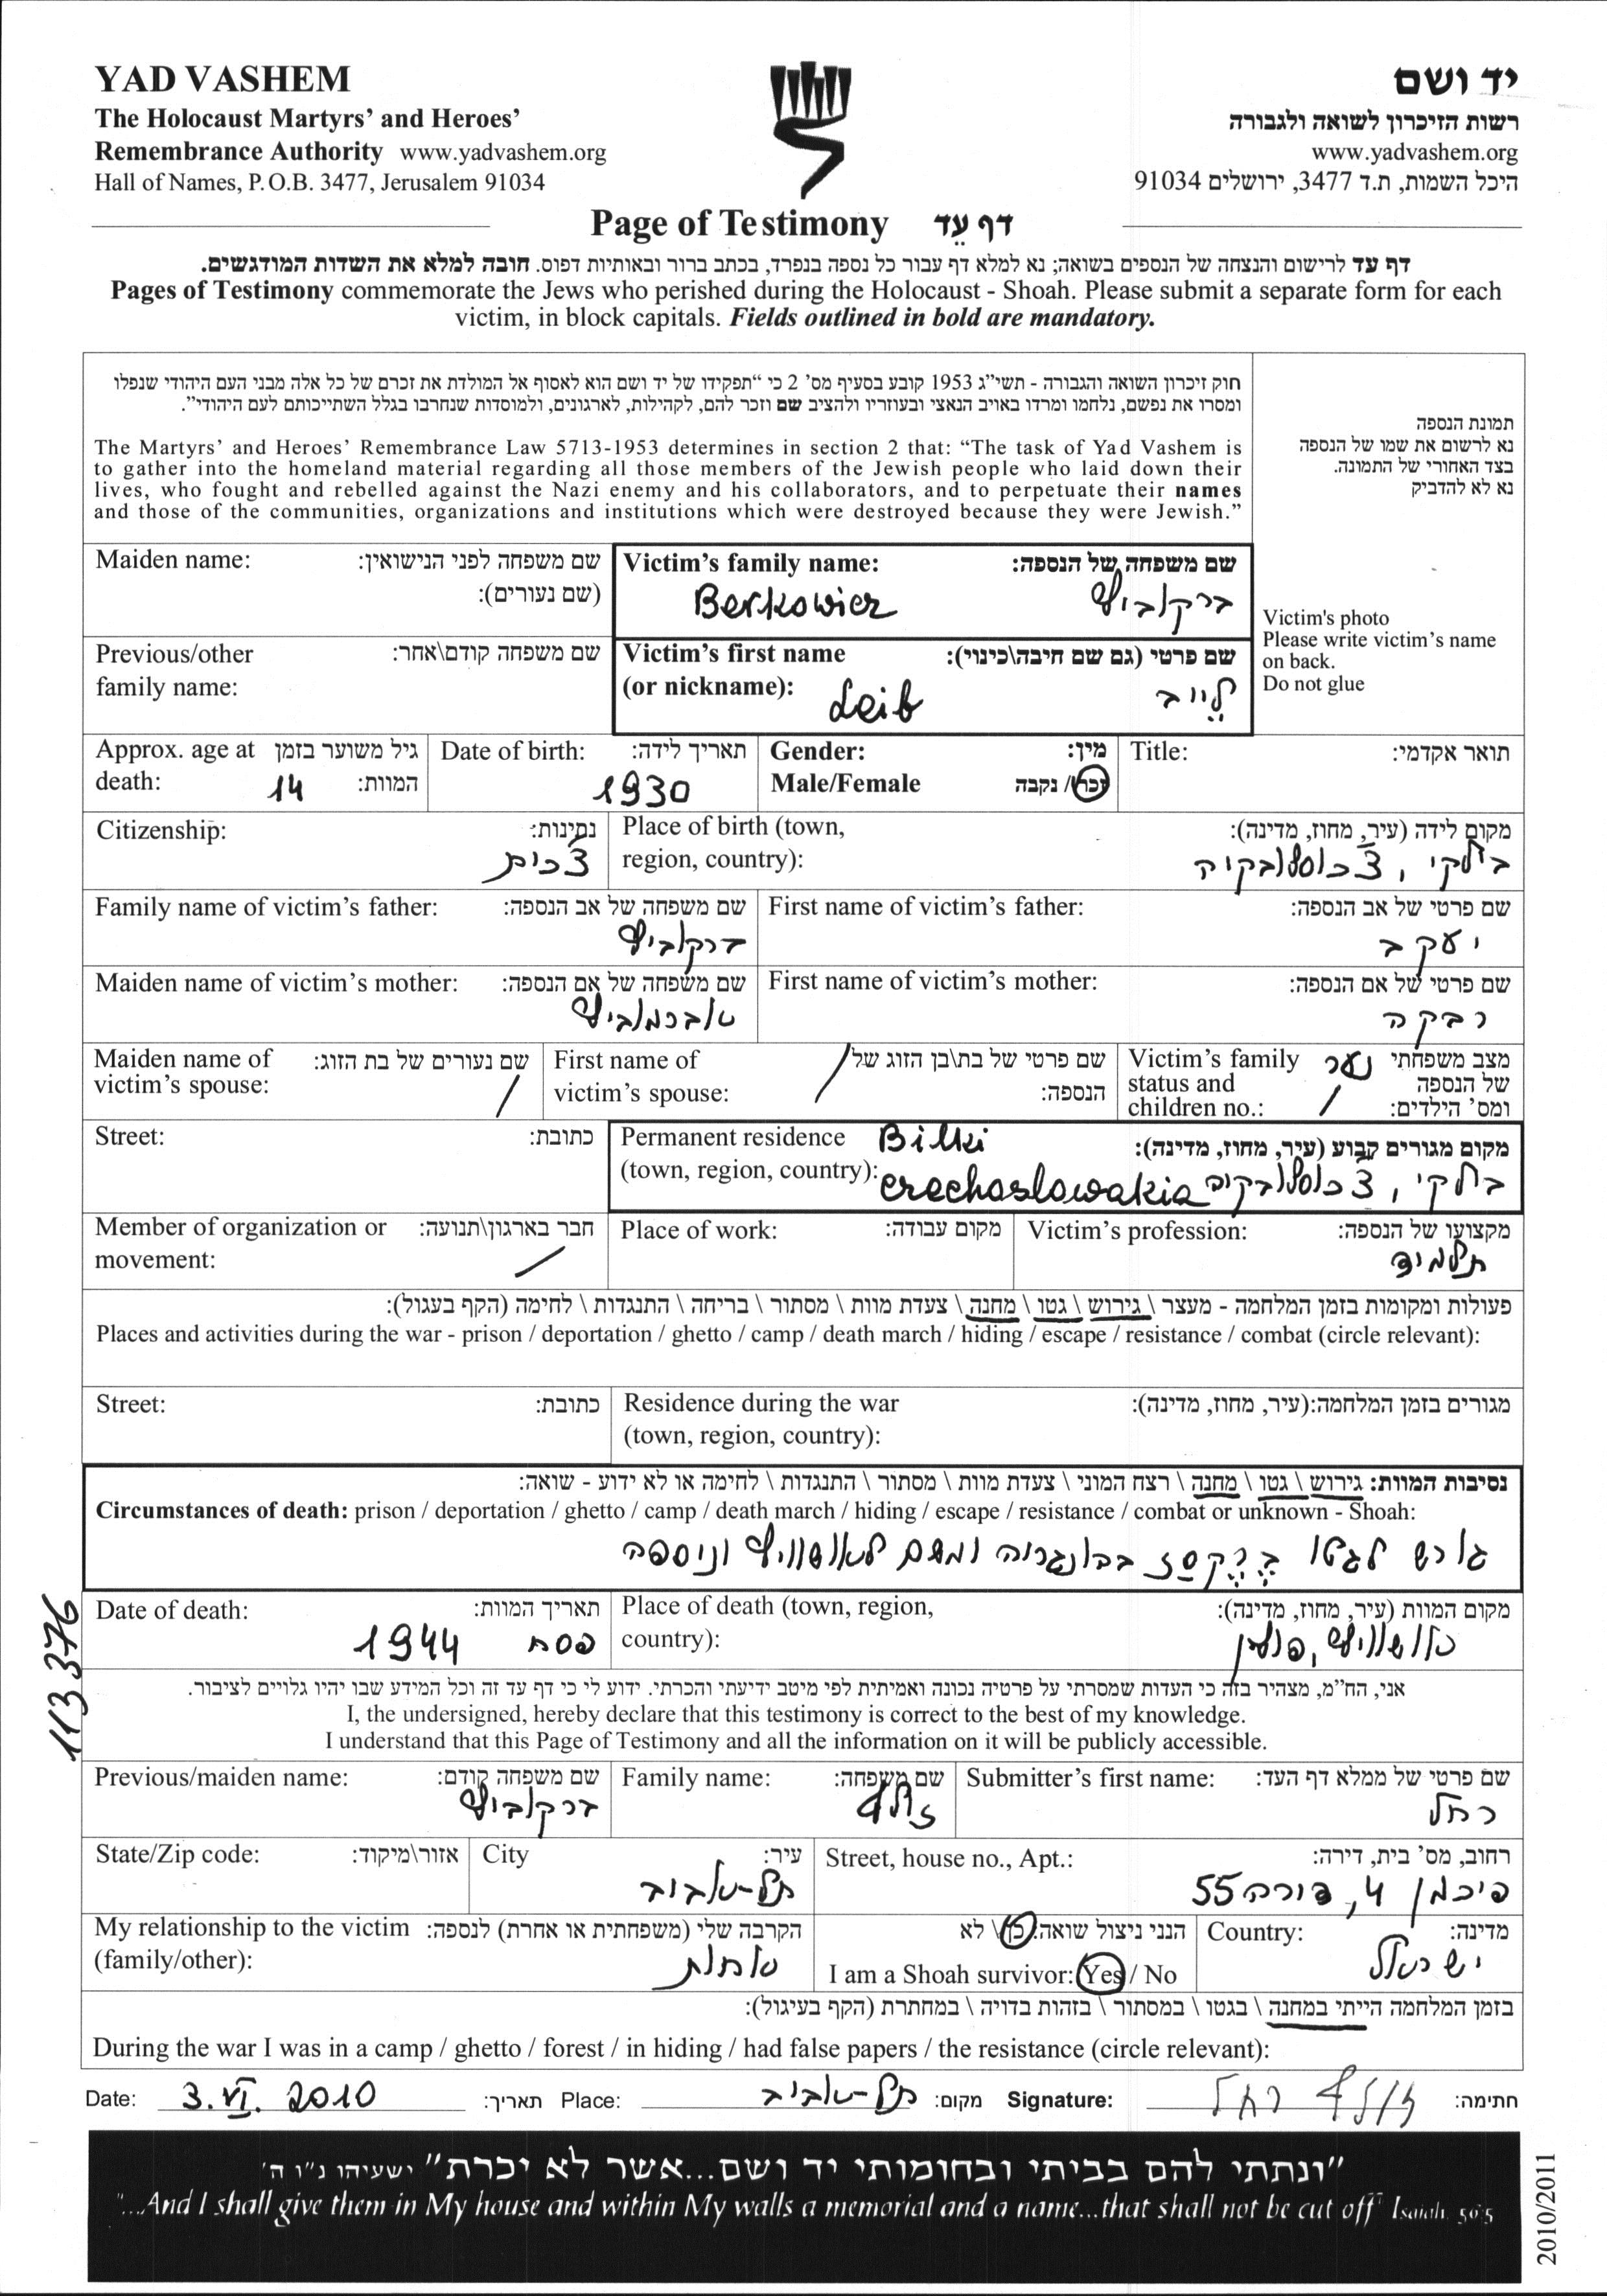 YAD VASHEM
The Holocaust Martyrs' and Heroes'
Remembrance Authority www.yadvashem.org
Hall of Names, P.O.B. 3477, Jerusalem 91034
יד ושם
רשות הזיכרון לשואה ולגבורה
www.yadvashem.org
היכל השמות, ת.ד 3477, ירושלים 91034
Page of Testimony דף עֵד
דף עד לרישום והנצחה של הנספים בשואה; נא למלא דף עבור כל נספה בנפרד, בכתב ברור ובאותיות דפוס. חובה למלא את השדות המודגשים.
Pages of Testimony commemorate the Jews who perished during the Holocaust - Shoah. Please submit a separate form for each
victim, in block capitals. Fields outlined in bold are mandatory.
חוק זיכרון השואה והגבורה - תשי"ג 1953 קובע בסעיף מס' 2 כי "תפקידו של יד ושם הוא לאסוף אל המולדת את זכרם של כל אלה מבני העם היהודי שנפלו
ומסרו את נפשם, נלחמו ומרדו באויב הנאצי ובעוזריו ולהציב שם וזכר להם, לקהילות, לארגונים, ולמוסדות שנחרבו בגלל השתייכותם לעם היהודי".
The Martyrs' and Heroes' Remembrance Law 5713-1953 determines in section 2 that: "The task of Yad Vashem is
to gather into the homeland material regarding all those members of the Jewish people who laid down their
lives, who fought and rebelled against the Nazi enemy and his collaborators, and to perpetuate their names
and those of the communities, organizations and institutions which were destroyed because they were Jewish."
תמונת הנספה
נא לרשום את שמו של הנספה
בצד האחורי של התמונה.
נא לא להדביק
Victim's photo
Please write victim's name
on back.
Do not glue
Maiden name: שם משפחה לפני הנישואין:
(שם נעורים):
Victim's family name: שם משפחה של הנספה:
Berkowicz ברקוביץ
Previous/other שם משפחה קודם\אחר:
family name:
Victim's first name שם פרטי (גם שם חיבה\כינוי):
(or nickname): Leib לייב
Approx. age at גיל משוער בזמן
death: 14 המוות:
Date of birth: תאריך לידה:
1930
Gender: מין:
Male/Female זכר/ נקבה
Title: תואר אקדמי:
Citizenship: נתינות:
צ'כית
Place of birth (town, מקום לידה (עיר, מחוז, מדינה):
region, country): בילקי, צ'כוסלובקיה
Family name of victim's father: שם משפחה של אב הנספה:
ברקוביץ
First name of victim's father: שם פרטי של אב הנספה:
יעקב
Maiden name of victim's mother: שם משפחה של אם הנספה:
אברמוביץ
First name of victim's mother: שם פרטי של אם הנספה:
רבקה
Maiden name of שם נעורים של בת הזוג:
victim's spouse: /
First name of שם פרטי של בת\בן הזוג של
victim's spouse: / הנספה:
Victim's family מצב משפחתי נער
status and של הנספה
children no.: / ומס' הילדים:
Street: כתובת:
Permanent residence Bilki מקום מגורים קבוע (עיר, מחוז, מדינה):
(town, region, country): czechoslowakia בילקי, צ'כוסלובקיה
Member of organization or חבר בארגון\תנועה:
movement: /
Place of work: מקום עבודה:
Victim's profession: מקצועו של הנספה:
תלמיד
פעולות ומקומות בזמן המלחמה - מעצר \ גירוש \ גטו \ מחנה \ צעדת מוות \ מסתור \ בריחה \ התנגדות \ לחימה (הקף בעגול):
Places and activities during the war - prison / deportation / ghetto / camp / death march / hiding / escape / resistance / combat (circle relevant):
Street: כתובת:
Residence during the war מגורים בזמן המלחמה:(עיר, מחוז, מדינה):
(town, region, country):
נסיבות המוות: גירוש \ גטו \ מחנה \ רצח המוני \ צעדת מוות \ מסתור \ התנגדות \ לחימה או לא ידוע - שואה:
Circumstances of death: prison / deportation / ghetto / camp / death march / hiding / escape / resistance / combat or unknown - Shoah:
גורש לגטו בֶרֶקְסַז בהונגריה ומשם לאושוויץ וניספה
Date of death: תאריך המוות:
פסח 1944
Place of death (town, region, מקום המוות (עיר, מחוז, מדינה):
country): אושוויץ, פולין
113376
אני, הח"מ, מצהיר בזה כי העדות שמסרתי על פרטיה נכונה ואמיתית לפי מיטב ידיעתי והכרתי. ידוע לי כי דף עד זה וכל המידע שבו יהיו גלויים לציבור.
I, the undersigned, hereby declare that this testimony is correct to the best of my knowledge.
I understand that this Page of Testimony and all the information on it will be publicly accessible.
Previous/maiden name: שם משפחה קודם:
ברקוביץ
Family name: שם משפחה:
Submitter's first name: שם פרטי של ממלא דף העד:
רחל
State/Zip code: אזור\מיקוד:
City עיר:
תל-אביב
Street, house no., Apt.: רחוב, מס' בית, דירה:
פיכמן 4, דירה 55
My relationship to the victim הקרבה שלי (משפחתית או אחרת) לנספה:
(family/other): אחות
הנני ניצול שואה: כן\ לא
I am a Shoah survivor: Yes / No
Country: מדינה:
ישראל
בזמן המלחמה הייתי במחנה \ בגטו \ במסתור \ בזהות בדויה \ במחתרת (הקף בעיגול):
During the war I was in a camp / ghetto / forest / in hiding / had false papers / the resistance (circle relevant):
Date: 3.VI.2010 תאריך: Place: תל-אביב מקום: Signature: רחל חתימה:
"ונתתי להם בביתי ובחומותי יד ושם...אשר לא יכרת" ישעיהו נ"ו ה'
"...And I shall give them in My house and within My walls a memorial and a name...that shall not be cut off" Isaiah 56:5
2010/2011